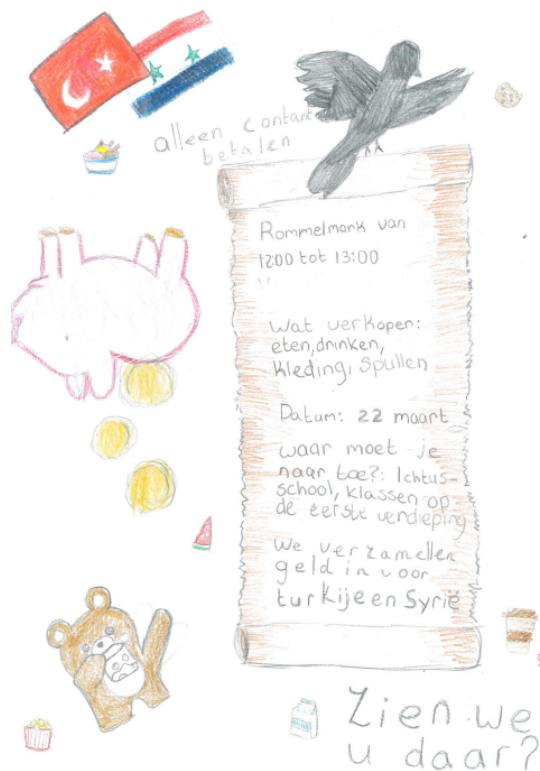 alleen contant
betalen
Rommelmark van
1200 tot 13:00
wat verkopen:
eten, drinken,
kleding, spullen
Datum: 22 maart
waar moet je
naar toe?: Ichtus-
school, klassen op
de eerste verdieping
We verzamellen
geld in voor
turkije en Syrië
Zien we
u daar?